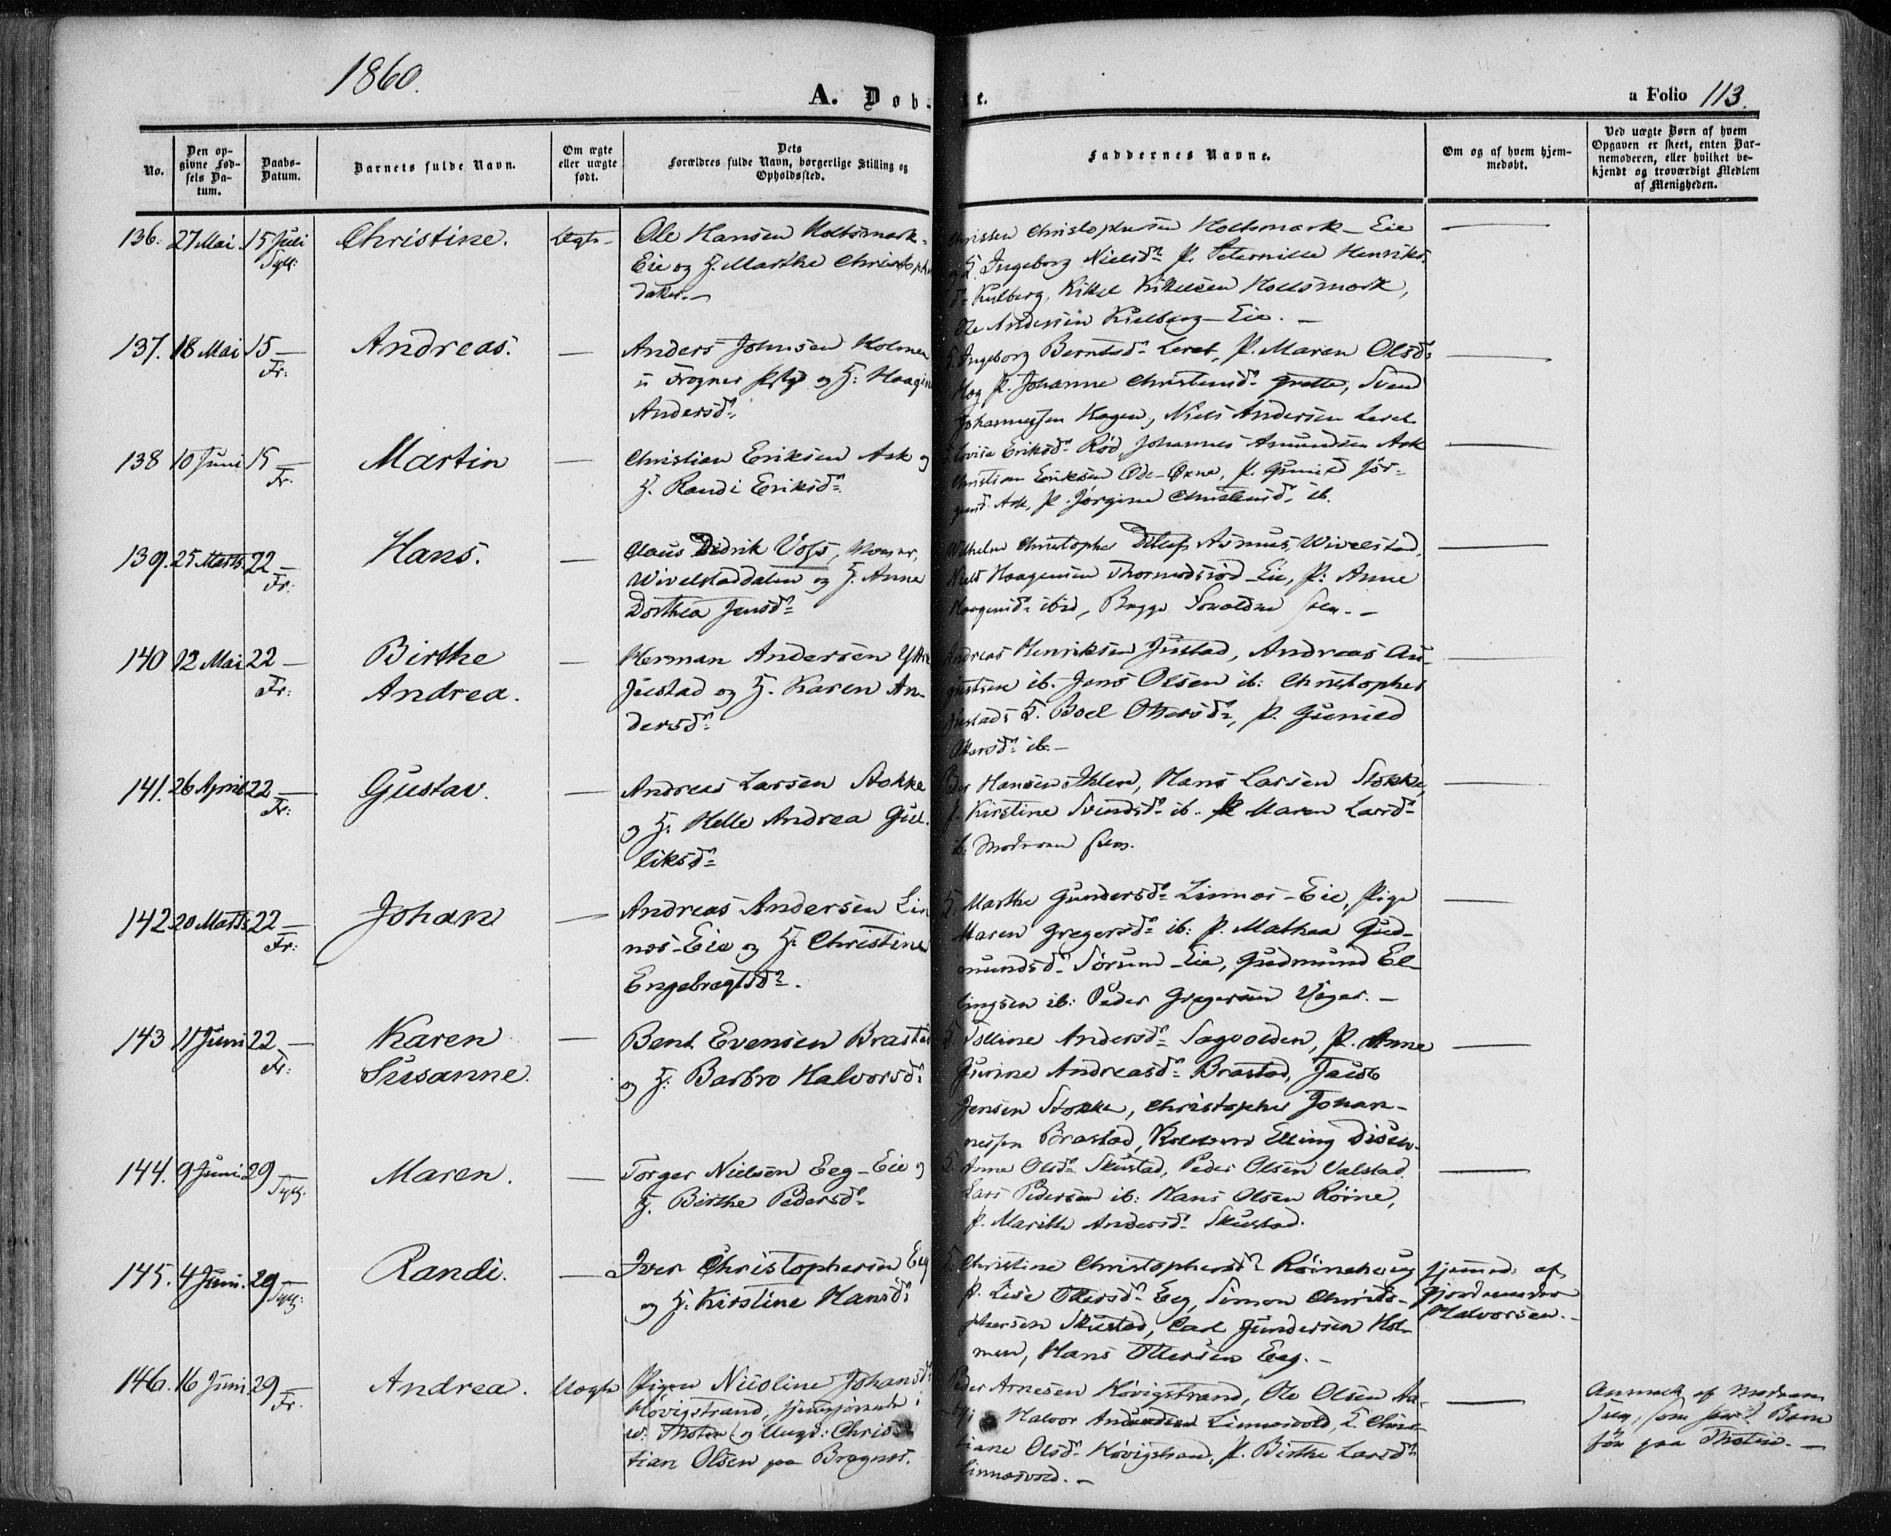 1860.
A. Døb-
te.
a Folio 113.
No.
Den op-
givne Fød-
sels Da-
tum.
Daabs-
Datum.
Barnets fulde Navn.
Om ægte
eller uægte
født.
Dets
Forældres fulde Navn, borgerlige Stilling og
Opholdssted.
Faddernes Navne.
Om og af hvem hjem-
medøbt.
Ved uægte Børn af hvem
Opgaven er skeet, enten Bar-
nemoderen, eller hvilket be-
kjendt og troværdigt Medlem
af Menigheden.
136. 27 Mai. 15 Juli Christine. Ægte Ole Hansen Holtsmark-
Eie og H. Marthe Christoph
datter.
Christen Christophersen Holtsmark-Eie
H. Ingeborg Nielsd. P. Peternille Henriks-
d. Kulberg, Kittel Kittelsen Holtsmark,
Ole Andersen Kulberg-Eie.
137. 18 Mai 15 Fr: Andreas. Anders Johnsen Holmen
i Frogner og H: Haagine
Andersd.
Ingeborg Berntsd. Leret, P. Maren Olsd.
Hog P. Johanne Christensd. Grette, Svend
Johannessen Hagen, Niels Andersen Leret
138 10 Juni 15 Fr. Martin Christian Eriksen Ask og
H. Randi Eriksd.
Lovise Eriksd. Rød, Johannes Amundsen Ask
Christian Eriksen P. Gunild Jør-
gensd. Ask, P. Jørgine Christensd. ib.
139. 25 Marts. 22 Fr. Hans. Claus Didrik Vofs,
Wivelstaddalen og H. Anne
Dorthea Jensd.
Wilhelm Christopher Detlef Asmus, Wivelstad,
Niels Haagensen Thormodsrød-Eie, P: Anne
Haagensd. ibid,
140 12 Mai 22 Fr: Birthe
Andrea. Herman Andersen Ytre
Jüstad og H. Karen An-
dersd.
Andreas Henriksen Jüstad, Andreas Au-
gustsen ib. Jens Olsen ib: Christopher
Jüstad, H. Boel Ottersd. P. Gunild
Ottersd. ib.
141. 26 April 22 Fr: Gustav. Andreas Larsen Stokke
og H. Helle Andrea Gul-
liksd.
Peder Hansen Ihlen, Hans Larsen Stokke,
P. Kirstine Svendsd. ib. P Maren Larsd.
ib:
142 20 Marts 22 Fr: Johan Andreas Andersen Lin
nes-Eie og H. Christine
Engebregtsd.
H: Marthe Gundersd. Linnes-Eie, Pige
Maren Gregersd. ib: P. Mathea Gud-
mundsd. Sørum-Eie, Gudmund El-
lingsen ib: Peder Gregersen
143 11 Juni 22 Fr: Karen
Susanne. Bent Evensen Brastad
og H. Barbro Halvorsd.
Andersd. Sagvolden, P. Anne
Gurine Andreasd. Brastad, Jacob
Jensen Stokke, Christopher Johan-
nessen Brastad,
144. 9 Juni 29 Maren. Torger Nielsen Eeg-Eie og
H. Birthe Pedersd.
Anne Olsd. Skustad, Peder Olsen Valstad
Lars Pedersen ib: Hans Olsen Röine,
P. Marithe Andersd. Skustad.
145. 4 Juni. 29 Randi. Iver Christophersen Eeg
og H. Kirstine Hansd.
Christine Christophersd. Røinehoug
P. Lise Ottersd. Eeg, Simon Christo-
phersen Skustad, Carl Gundersen Hol-
men, Hans Ottersen Eeg.
hjemmed: af
Gjordemoder
Halvorsen.
146. 16 Juni 29 Fr. Andrea. Uægte Pigen Nicoline Johansd.
Høvigstrand,
Thoten og Ungk. Chris-
tian Olsen paa Bragnes.
Peder Arnesen Høvigstrand, Ole Olsen Aa-
by, Halvor Linnesvold, Chris-
tiane Olsd. Høvigstrand, P. Birthe Larsd.
Linnesvold.
Anmeldt af Moderen
selv, som har 1 Barn
før paa Thoten.